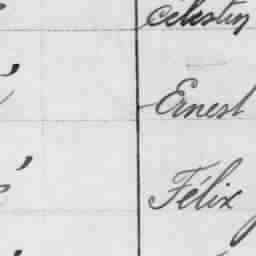 Celestin
Ernest
Félix